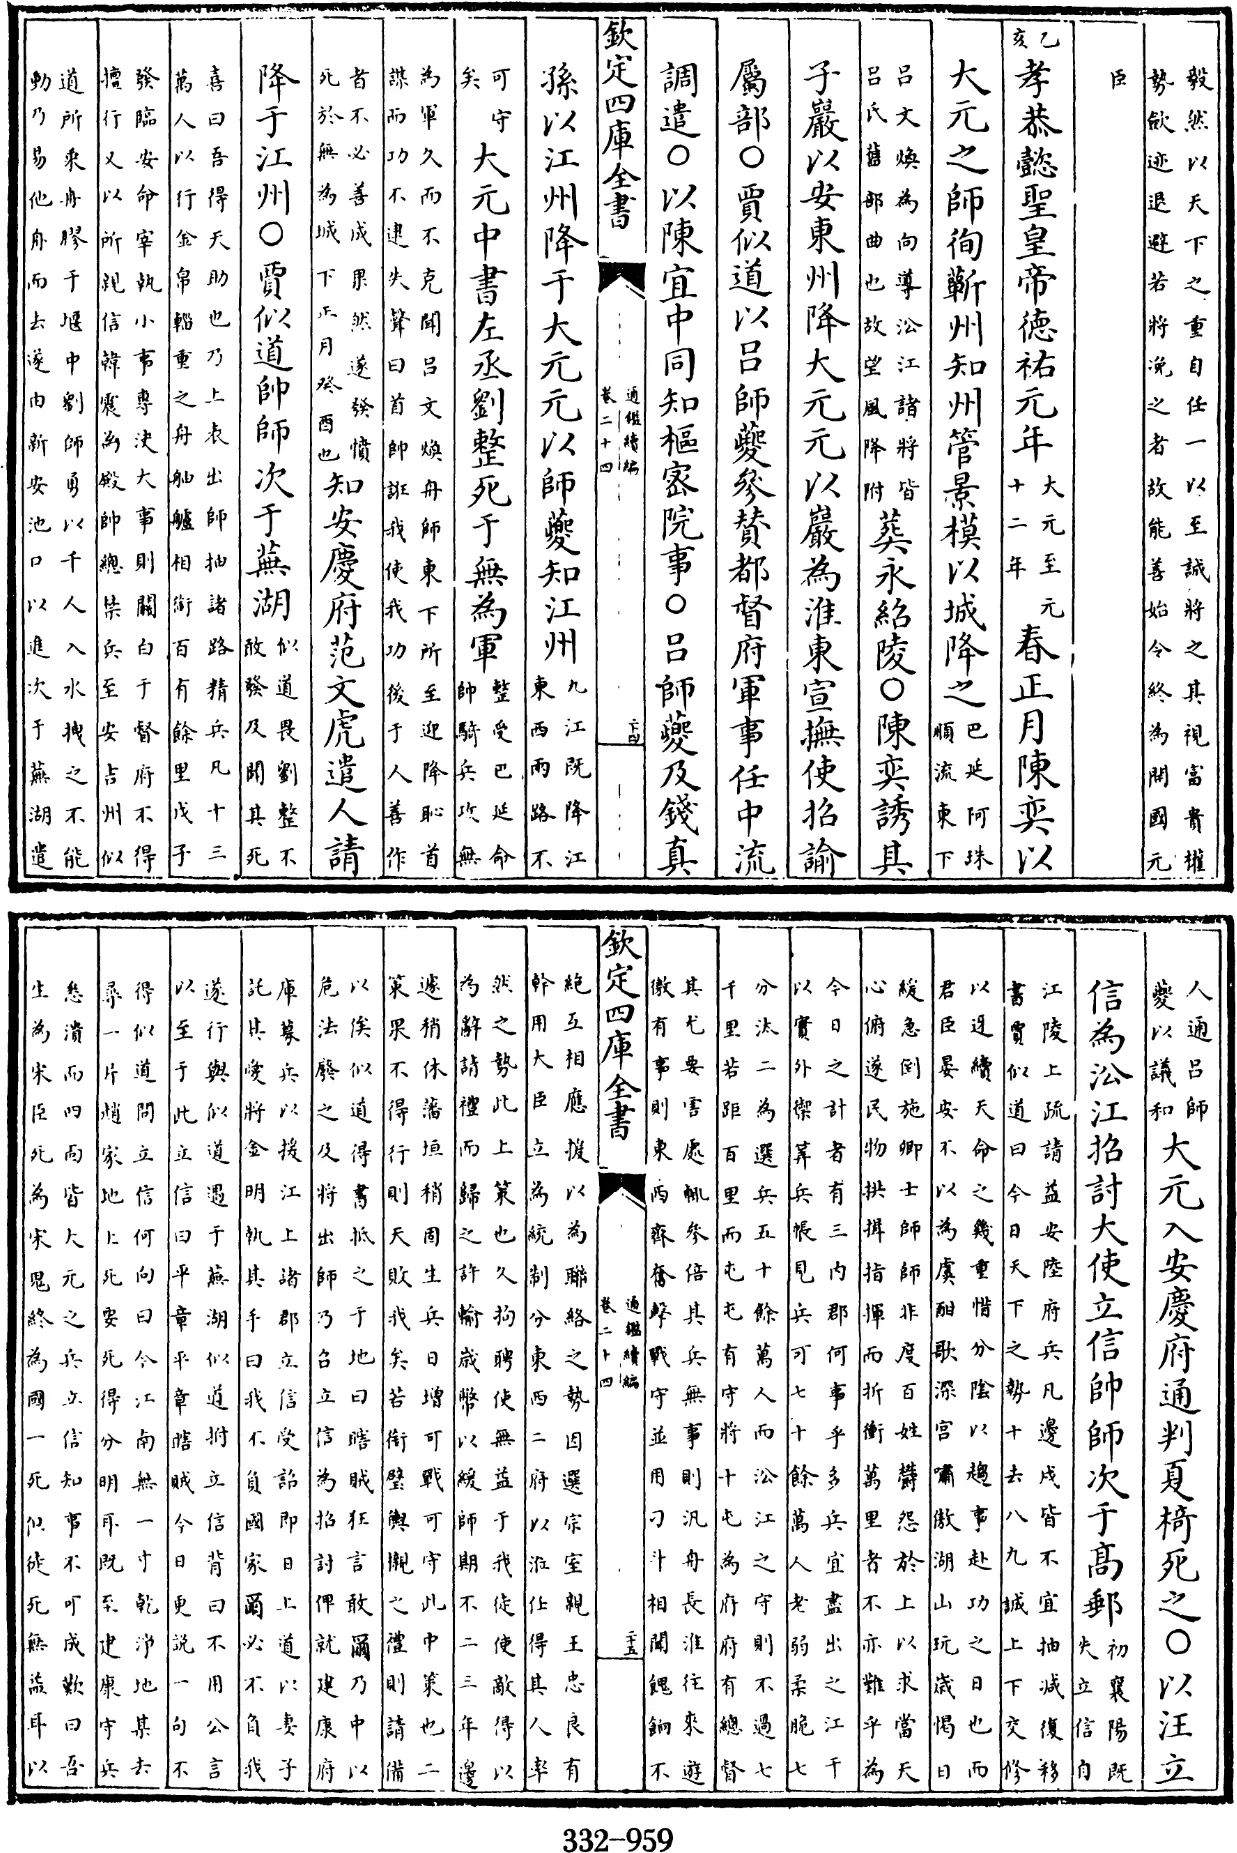 毅然以天下之重自任一以至誠將之其視富貴權
勢歛迹退避若將浼之者故能善始令終為開國元
臣
乙亥孝恭懿聖皇帝德祐元年大元至元十二年春正月陳奕以
大元之師徇蘄州知州管景模以城降之巴延阿珠順流東下
吕文煥為向導沿江諸將皆吕氏舊部曲也故望風降附葬永紹陵○陳奕誘其
子巖以安東州降大元元以巖為淮東宣撫使招諭
屬部○賈似道以吕師夔參贊都督府軍事任中流
調遣○以陳宜中同知樞密院事○吕師夔及錢真
欽定四庫全書
通鑑續編
卷二十四
二十四
孫以江州降于大元元以師夔知江州九江既降江東西兩路不
可守矣大元中書左丞劉整死于無為軍整受巴延命帥騎兵攻無
為軍久而不克聞吕文煥舟師東下所至迎降恥首
謀而功不逮失聲曰首帥誑我使我功後于人善作
者不必善成果然遂發憤死於無為城下正月癸酉也知安慶府范文虎遣人請
降于江州○賈似道帥師次于蕪湖似道畏劉整不敢發及聞其死
喜曰吾得天助也乃上表出師抽諸路精兵凡十三
萬人以行金帛輜重之舟舳艫相銜百有餘里戊子
發臨安命宰執小事專決大事則關白于督府不得
擅行又以所親信韓震為殿帥總禁兵至安吉州似
道所乘舟膠于堰中劉師勇以千人入水拽之不能
動乃易他舟而去遂由新安池口以進次于蕪湖遣
人通吕師夔以議和大元入安慶府通判夏椅死之○以汪立
信為沿江招討大使立信帥師次于高郵初襄陽既失立信自
江陵上疏請益安陸府兵凡邊戍皆不宜抽減復移
書賈似道曰今日天下之勢十去八九誠上下交修
以迓續天命之幾重惜分陰以趨事赴功之日也而
君臣晏安不以為虞酣歌深宫嘯傲湖山玩歲愒日
緩急倒施卿士師師非度百姓鬱怨於上以求當天
心俯遂民物拱揖指揮而折衝萬里者不亦難乎為
今日之計者有三内郡何事乎多兵宜盡出之江干
以實外禦筭兵帳見兵可七十餘萬人老弱柔脆七
分汰二為選兵五十餘萬人而沿江之守則不過七
千里若距百里而屯屯有守將十屯為府府有總督
其尤要害處輒參倍其兵無事則汎舟長淮往來遊
徼有事則東西齊奮擊戰守並用刁斗相聞餽餉不
欽定四庫全書
通鑑續編
卷二十四
二十五
絶互相應援以為聯絡之勢因選宗室親王忠良有
幹用大臣立為統制分東西二府以涖任得其人率
然之勢此上策也久拘聘使無益于我徒使敵得以
為辭請禮而歸之許輸歲幣以緩師期不二三年邊
遽稍休藩垣稍周生兵日增可戰可守此中策也二
策果不得行則天敗我矣若銜璧輿櫬之禮則請備
以俟似道得書抵之于地曰瞎賊狂言敢爾乃中以
危法廢之及將出師乃召立信為招討俾就建康府
庫募兵以援江上諸郡立信受詔即日上道以妻子
託其愛將金明執其手曰我不負國家爾必不負我
遂行與似道遇于蕪湖似道拊立信背曰不用公言
以至于此立信曰平章平章瞎賊今日更説一句不
得似道問立信何向曰今江南無一寸乾淨地某去
尋一片趙家地上死要死得分明耳既至建康守兵
悉潰而四面皆大元之兵立信知事不可成歎曰吾
生為宋臣死為宋鬼終為國一死但徒死無益耳以
332-959